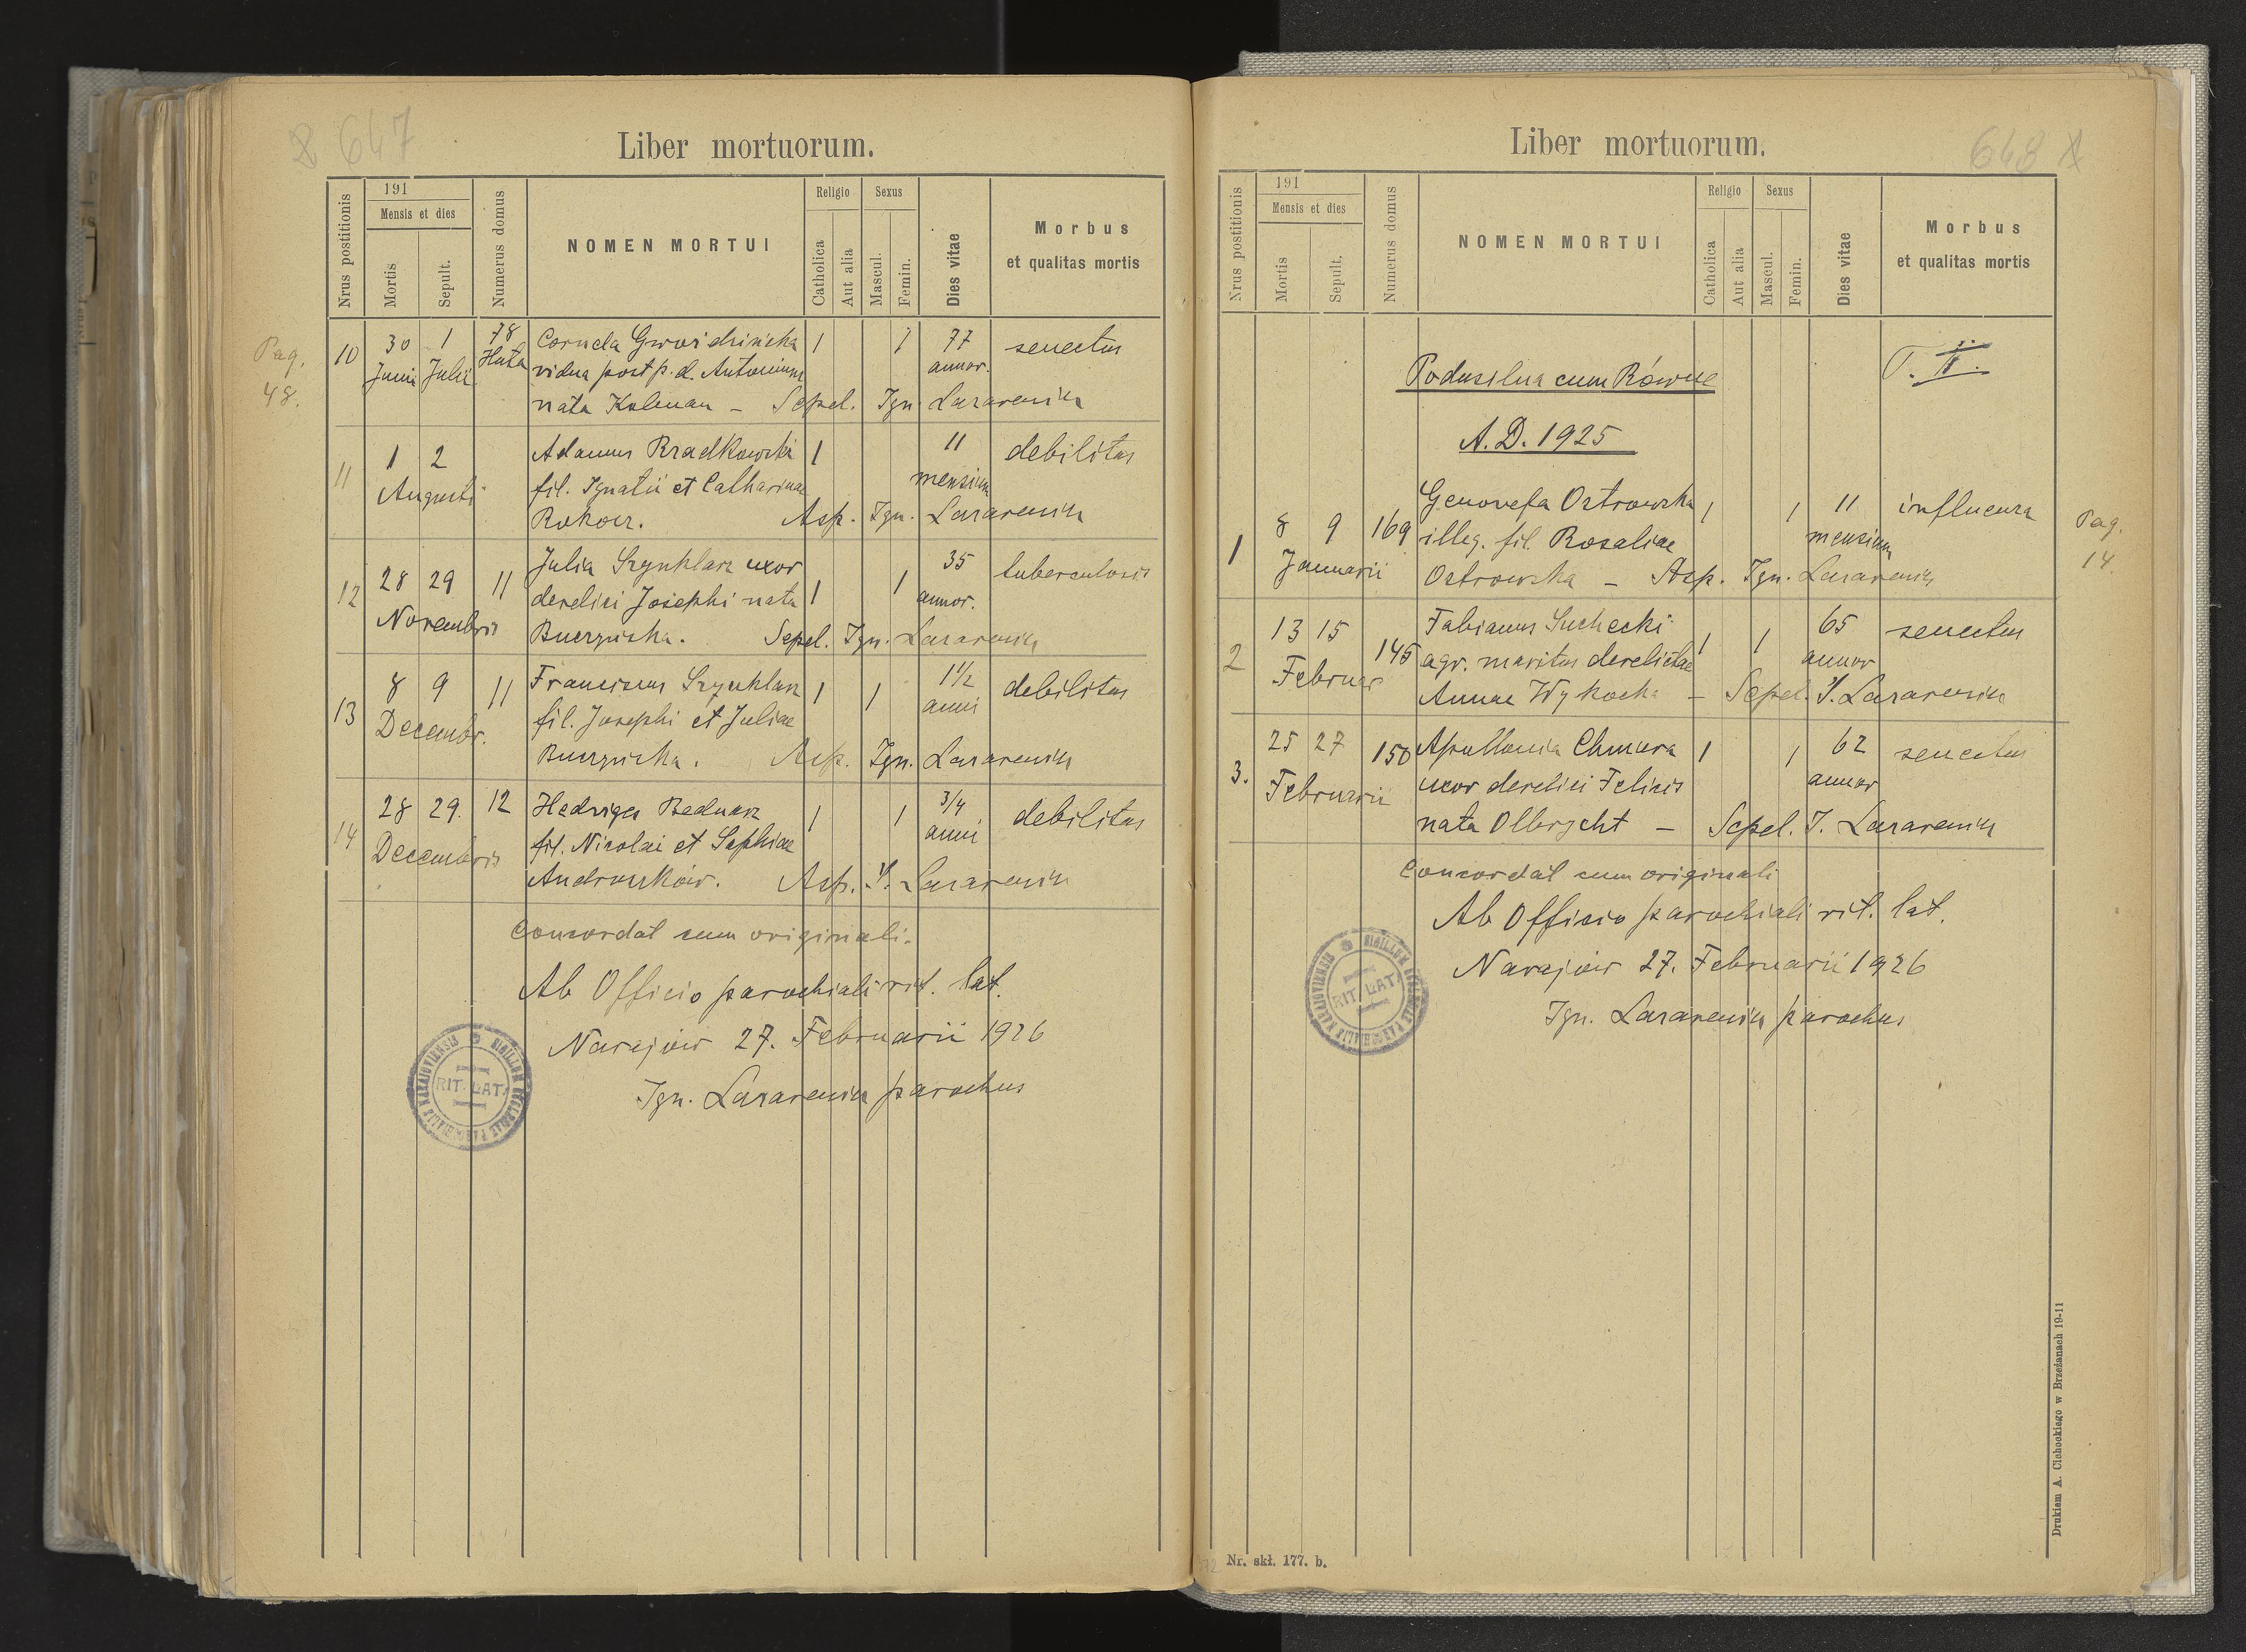 647
Liber mortuorum.
Nrus postitionis
191
Mensis et dies
Mortis
Sepult.
Numerus domus
NOMEN MORTUI
Religio
Catholica
Aut alia
Sexus
Mascul.
Femin.
Dies vitae
Morbus
et qualitas mortis
Pag. 48.
10 30 1 78 Cornela 1 1 77 senectus
Junii Julii Huta vidua post p. d. Antonium annor.
nata Kolman - Sepel. Ign. Lazarewicz
11 1 2 Adamus Rradkowski 1 11 debilitas
Augusti fil. Ignatii et Catharinae mensium
Asp. Ign. Lazarewicz
12 28 29 11 Julia Szynklarz uxor 1 1 35 tuberculosis
Novembris derelici Josephi nata annor.
Sepel. Ign. Lazarewicz
13 8 9 11 Franciscus Szynklarz 1 1 1½ debilitas
Decembr. fil. Josephi et Juliae anni
Asp. Ign. Lazarewicz
14 28 29. 12 Hedviges Bednarz 1 1 3/4 debilitas
Decembris fil. Nicolai et Sophiae anni
Andruszków. Asp. I. Lazarewicz
Concordat cum originali.
Ab Officio parochiali rit. lat.
Narajów 27. Februarii 1926
Ign. Lazarewicz parochus
SIGILLUM ECCLESIAE PAROCHIALIS NARAJOVIENSIS
RIT. LAT.
648
Liber mortuorum.
Nrus postitionis
191
Mensis et dies
Mortis
Sepult.
Numerus domus
NOMEN MORTUI
Religio
Catholica
Aut alia
Sexus
Mascul.
Femin.
Dies vitae
Morbus
et qualitas mortis
Podusilna cum Równe
T. II.
A. D. 1925
1 8 9 169 Genovefa Ostrowska 1 1 11 influenza
Januarii illeg. fil. Rosaliae mensium
Ostrowska - Asp. Ign. Lazarewicz
Pag. 14.
2 13 15 145 Fabianus Suchecki 1 1 65 senectus
Februar agr. maritus derelictae annor
Annae Wykocka - Sepel. I. Lazarewicz
3. 25 27 150 Apollonia Chmura 1 1 62 senectus
Februarii uxor derelici Felicis annor
nata Olbrycht - Sepel. I. Lazarewicz
Concordat cum originali
Ab Officio parochiali rit. lat.
Narajów 27. Februarii 1926
Ign. Lazarewicz parochus
SIGILLUM ECCLESIAE PAROCHIALIS NARAJOVIENSIS
RIT. LAT.
Nr. skł. 177. b.
Drukiem A. Cichockiego w Brzeżanach 19-11